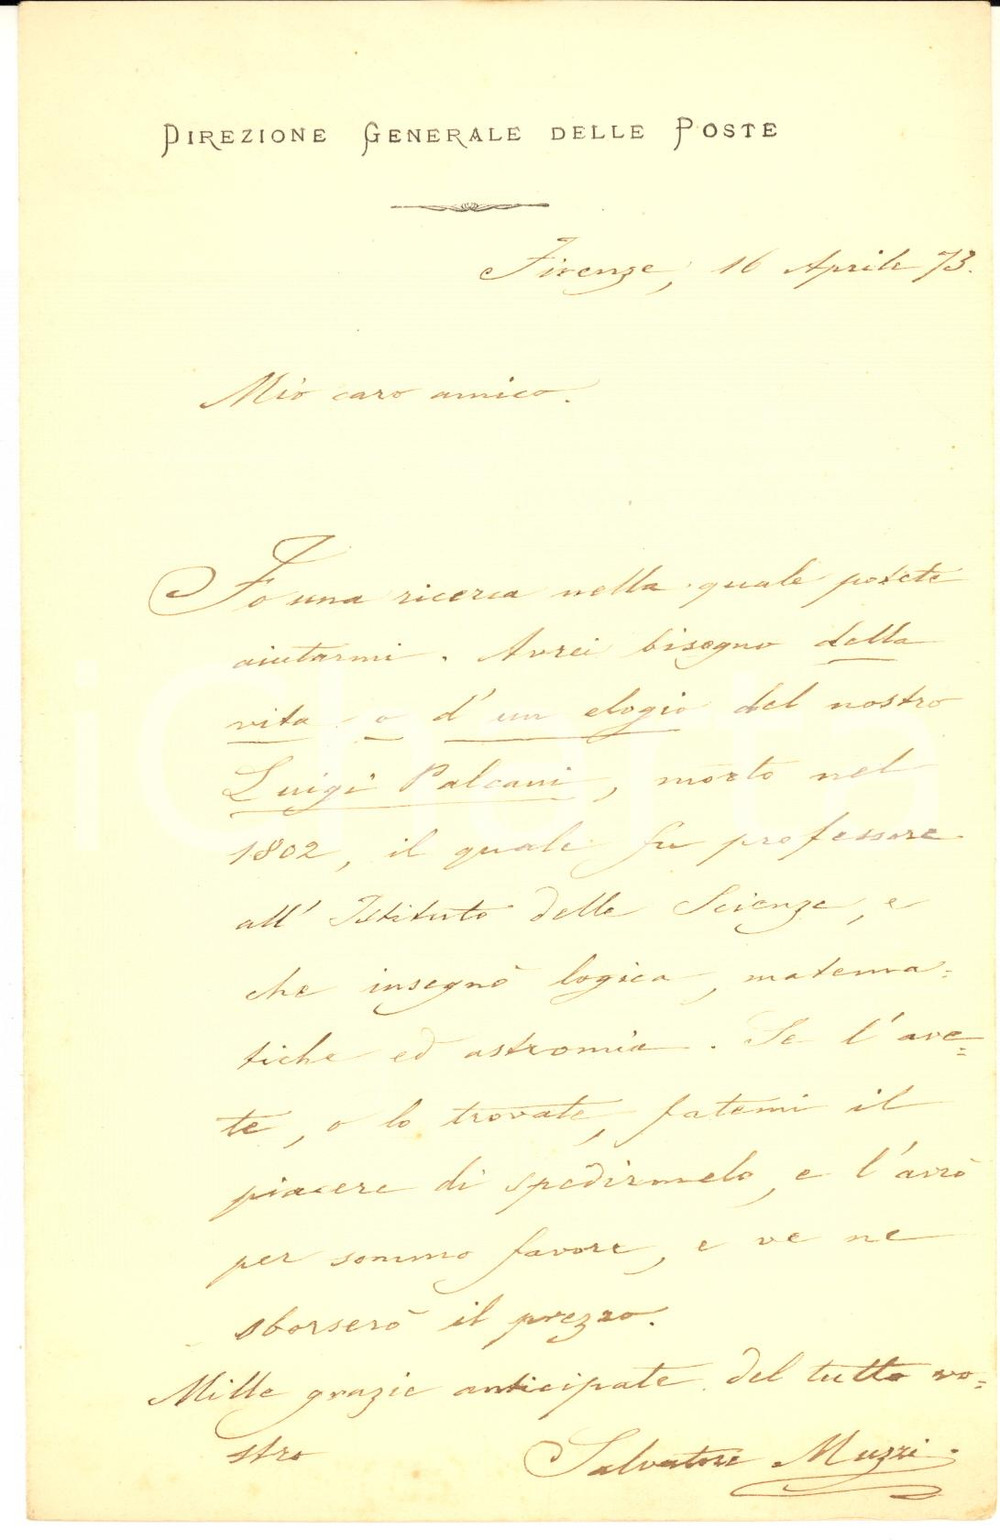 DIREZIONE GENERALE DELLE POSTE
Firenze, 16 Aprile 73.
Mio caro amico.
Fo una ricerca nella quale potete
aiutarmi. Avrei bisogno della
vita o d'un elogio del nostro
Luigi Palcani, morto nel
1802, il quale fu professore
all'Istituto delle Scienze, e
che insegnò logica, matema=
tiche ed astromia. Se l'ave=
te, o lo trovate, fatemi il
piacere di spedirmelo, e l'avrò
per sommo favore, e ve ne
sborserò il prezzo.
Mille grazie anticipate del tutto vo=
stro
Salvatore Muzzi.
iCharta